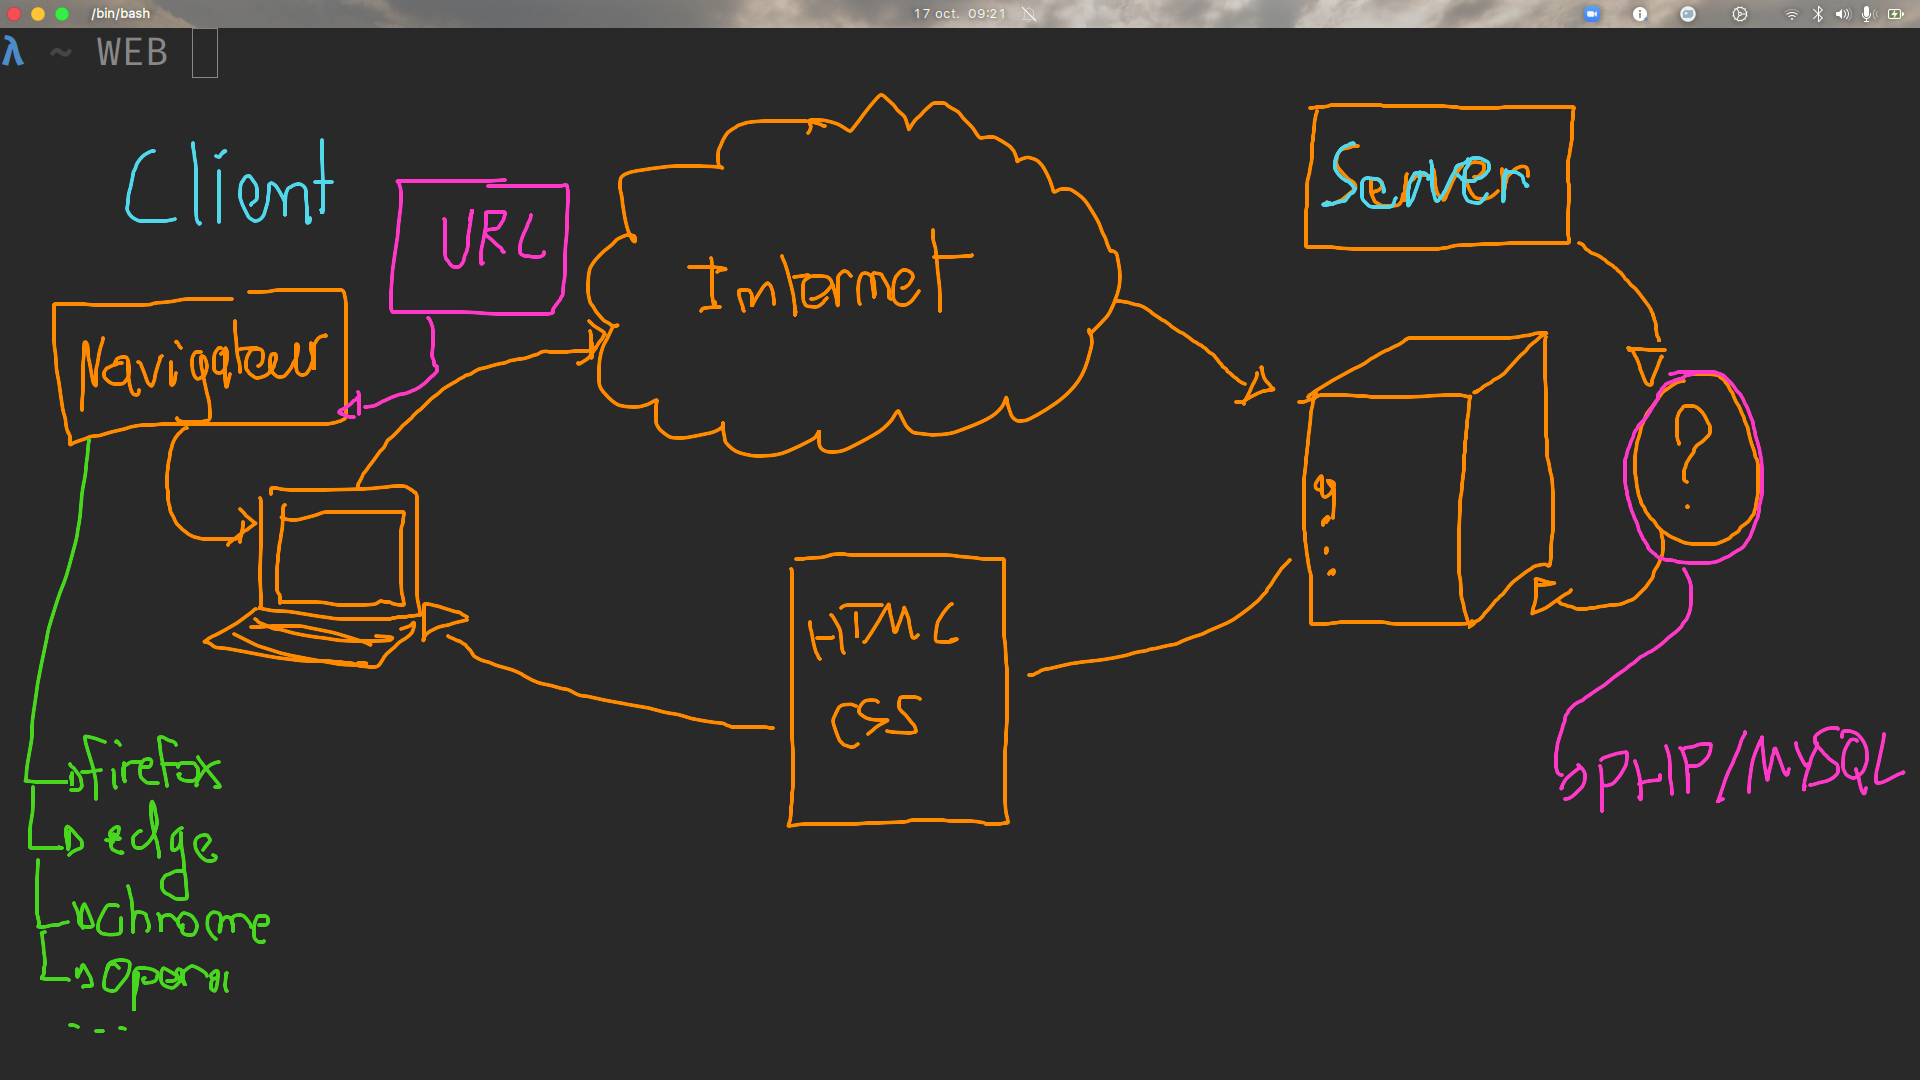 /bin/bash
17 oct. 09:21
λ ~ WEB
Client
URL
Internet
Server
Navigateur
?
HTML
CSS
PHP/MYSQL
firefox
edge
chrome
opera
...